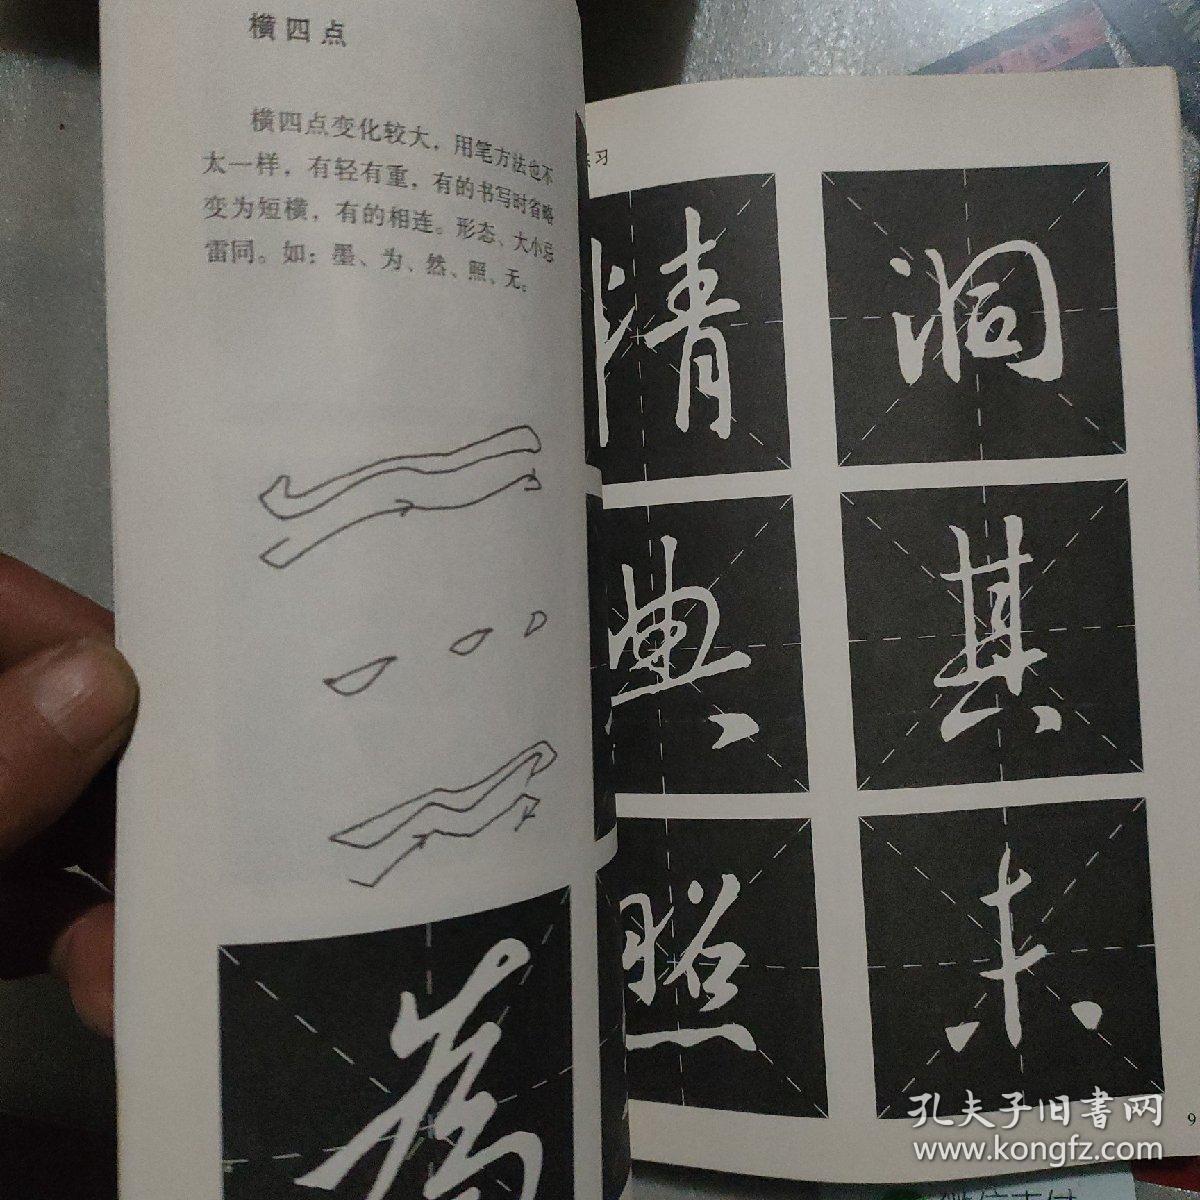 横四点
横四点变化较大，用笔方法也不
太一样，有轻有重，有的书写时省略
变为短横，有的相连。形态、大小忌
雷同。如：墨、为、然、照、无。
习
情 洞
典 其
照 未
為
孔夫子旧书网
www.kongfz.com
9